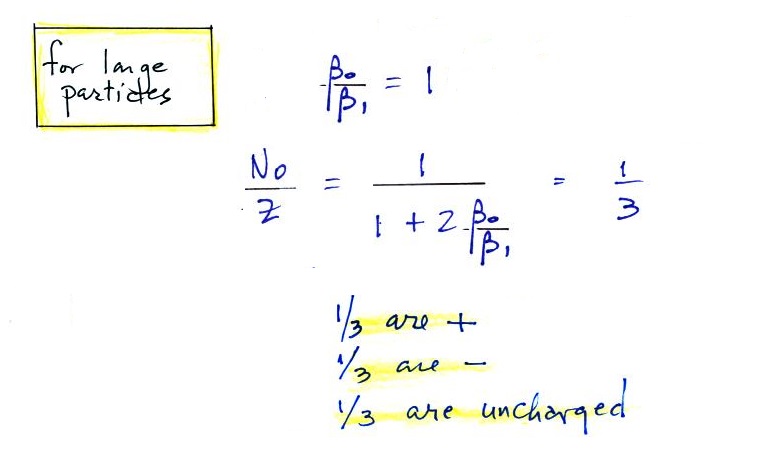 for large
particles
β₀/β₁ = 1
N₀/Z = 1/(1 + 2 β₀/β₁) = 1/3
1/3 are +
1/3 are −
1/3 are uncharged